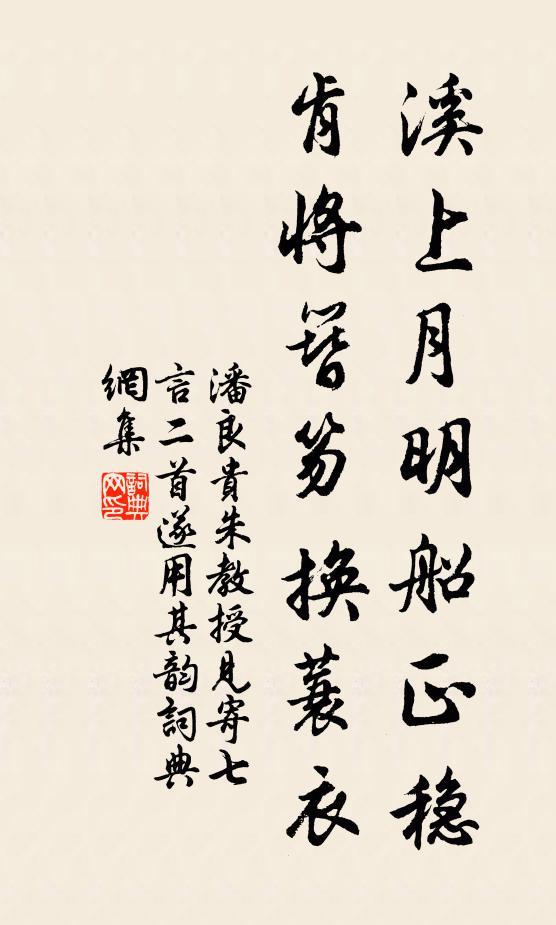 溪上月明船正穏
肯將簪笏換蓑衣
潘良貴朱教授見寄七
言二首遂用其韵詞典
網集
詞典
网印